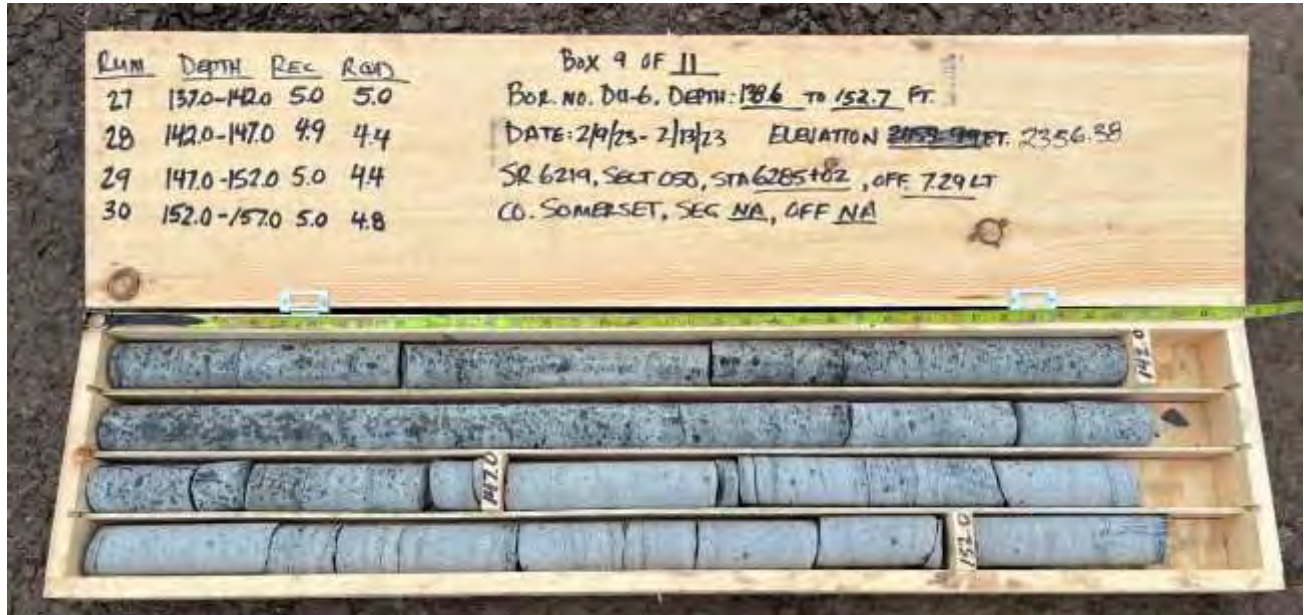 RUN DEPTH REC RQD
27 137.0-142.0 5.0 5.0
28 142.0-147.0 4.9 4.4
29 147.0-152.0 5.0 4.4
30 152.0-157.0 5.0 4.8
BOX 9 OF 11
BOR. NO. DH-6, DEPTH: 138.6 TO 152.7 FT.
DATE: 2/9/23- 2/13/23 ELEVATION FT. 2356.38
SR 6219, SECT 050, STA 6285+82, OFF. 7.29 LT
CO. SOMERSET, SEG NA, OFF NA
142.0
147.0
152.0